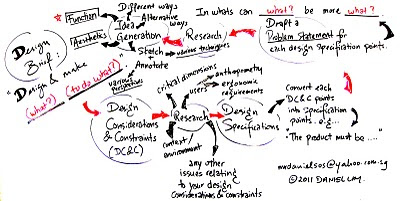 Design
Brief:
"Design & make
(what?) (to do what?)"
Function
Aesthetics
Different ways
Alternative
ways
Idea
Generation
Sketch
+
Annotate
various perspectives
Research
various techniques
In whats can what? be more what?
Draft a
Problem Statement for
each design specification points.
Design
Considerations
& Constraints
(DC&C)
Research
critical dimensions
users
anthropometry
ergonomic
requirements
context/
environment
any other
issues relating
to your design
considerations & constraints
Design
Specifications
Convert each
DC&C points
into specification
points. e.g...
"The product must be ...."
mrdanielsos@yahoo.com.sg
©2011 DANIEL LIM.